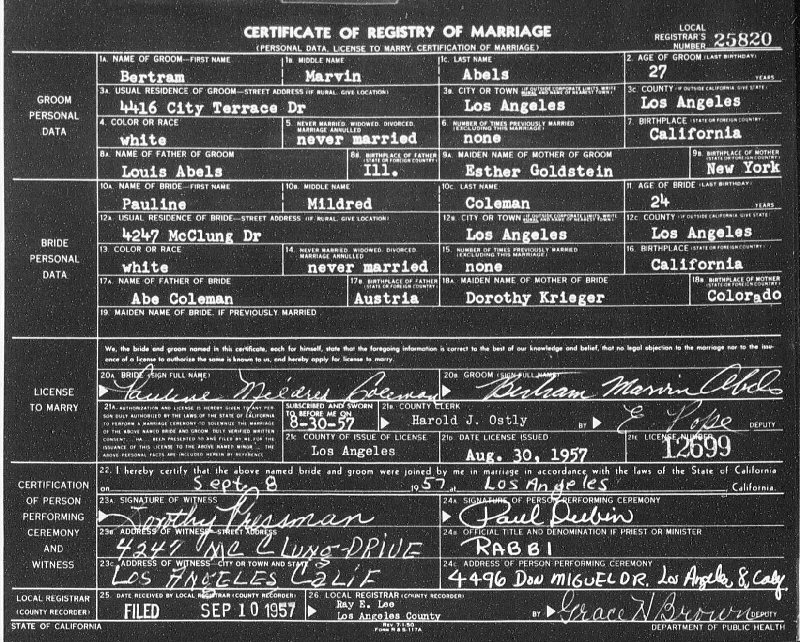 CERTIFICATE OF REGISTRY OF MARRIAGE
(PERSONAL DATA, LICENSE TO MARRY, CERTIFICATION OF MARRIAGE)
LOCAL REGISTRAR'S NUMBER 25820
GROOM PERSONAL DATA
1A. NAME OF GROOM—FIRST NAME 1B. MIDDLE NAME 1C. LAST NAME 2. AGE OF GROOM (LAST BIRTHDAY)
Bertram Marvin Abels 27 YEARS
3A. USUAL RESIDENCE OF GROOM—STREET ADDRESS (IF RURAL, GIVE LOCATION) 3B. CITY OR TOWN (IF OUTSIDE CORPORATE LIMITS, WRITE RURAL AND NAME OF NEAREST TOWN) 3C. COUNTY (IF OUTSIDE CALIFORNIA, GIVE STATE)
4416 City Terrace Dr Los Angeles Los Angeles
4. COLOR OR RACE 5. NEVER MARRIED, WIDOWED, DIVORCED, MARRIAGE ANNULLED 6. NUMBER OF TIMES PREVIOUSLY MARRIED (EXCLUDING THIS MARRIAGE) 7. BIRTHPLACE (STATE OR FOREIGN COUNTRY)
white never married none California
8A. NAME OF FATHER OF GROOM 8B. BIRTHPLACE OF FATHER (STATE OR FOREIGN COUNTRY) 9A. MAIDEN NAME OF MOTHER OF GROOM 9B. BIRTHPLACE OF MOTHER (STATE OR FOREIGN COUNTRY)
Louis Abels Ill. Esther Goldstein New York
BRIDE PERSONAL DATA
10A. NAME OF BRIDE—FIRST NAME 10B. MIDDLE NAME 10C. LAST NAME 11. AGE OF BRIDE (LAST BIRTHDAY)
Pauline Mildred Coleman 24 YEARS
12A. USUAL RESIDENCE OF BRIDE—STREET ADDRESS (IF RURAL, GIVE LOCATION) 12B. CITY OR TOWN (IF OUTSIDE CORPORATE LIMITS, WRITE RURAL AND NAME OF NEAREST TOWN) 12C. COUNTY (IF OUTSIDE CALIFORNIA, GIVE STATE)
4247 McClung Dr Los Angeles Los Angeles
13. COLOR OR RACE 14. NEVER MARRIED, WIDOWED, DIVORCED, MARRIAGE ANNULLED 15. NUMBER OF TIMES PREVIOUSLY MARRIED (EXCLUDING THIS MARRIAGE) 16. BIRTHPLACE (STATE OR FOREIGN COUNTRY)
white never married none California
17A. NAME OF FATHER OF BRIDE 17B. BIRTHPLACE OF FATHER (STATE OR FOREIGN COUNTRY) 18A. MAIDEN NAME OF MOTHER OF BRIDE 18B. BIRTHPLACE OF MOTHER (STATE OR FOREIGN COUNTRY)
Abe Coleman Austria Dorothy Krieger Colorado
19. MAIDEN NAME OF BRIDE, IF PREVIOUSLY MARRIED
LICENSE TO MARRY
We, the bride and groom named in this certificate, each for himself, state that the foregoing information is correct to the best of our knowledge and belief, that no legal objection to the marriage nor to the issuance of a license to authorize the same is known to us, and hereby apply for license to marry.
20A. BRIDE (SIGN FULL NAME) 20B. GROOM (SIGN FULL NAME)
Pauline Mildred Coleman Bertram Marvin Abels
21A. AUTHORIZATION AND LICENSE IS HEREBY GIVEN TO ANY PERSON DULY AUTHORIZED BY THE LAWS OF THE STATE OF CALIFORNIA TO PERFORM A MARRIAGE CEREMONY TO SOLEMNIZE THE MARRIAGE OF THE ABOVE NAMED BRIDE AND GROOM. DULY VERIFIED WRITTEN CONSENT HA BEEN PRESENTED TO AND FILED BY ME FOR THE ISSUANCE OF THIS LICENSE TO THE ABOVE NAMED MINOR THE ABOVE PERSONAL FACTS ARE INCLUDED HEREIN BY REFERENCE
SUBSCRIBED AND SWORN TO BEFORE ME ON 21B. COUNTY CLERK
8-30-57 Harold J. Ostly BY E. Pope DEPUTY
21C. COUNTY OF ISSUE OF LICENSE 21D. DATE LICENSE ISSUED 21E. LICENSE NUMBER
Los Angeles Aug. 30, 1957 12699
CERTIFICATION OF PERSON PERFORMING CEREMONY AND WITNESS
22. I hereby certify that the above named bride and groom were joined by me in marriage in accordance with the laws of the State of California
on Sept. 8 1957 at Los Angeles California.
23A. SIGNATURE OF WITNESS 24A. SIGNATURE OF PERSON PERFORMING CEREMONY
Dorothy Pressman Paul Dubin
23B. ADDRESS OF WITNESS—STREET ADDRESS 24B. OFFICIAL TITLE AND DENOMINATION IF PRIEST OR MINISTER
4247 MC CLUNG DRIVE RABBI
23C. ADDRESS OF WITNESS—CITY OR TOWN AND STATE 24C. ADDRESS OF PERSON PERFORMING CEREMONY
LOS ANGELES CALIF 4496 DON MIGUEL DR. Los Angeles 8, Calif
LOCAL REGISTRAR (COUNTY RECORDER)
25. DATE RECEIVED BY LOCAL REGISTRAR (COUNTY RECORDER) 26. LOCAL REGISTRAR (COUNTY RECORDER)
FILED SEP 10 1957 Ray E. Lee
Los Angeles County BY Grace N Brown DEPUTY
STATE OF CALIFORNIA Rev 7-1-50 FORM R & S-117A DEPARTMENT OF PUBLIC HEALTH